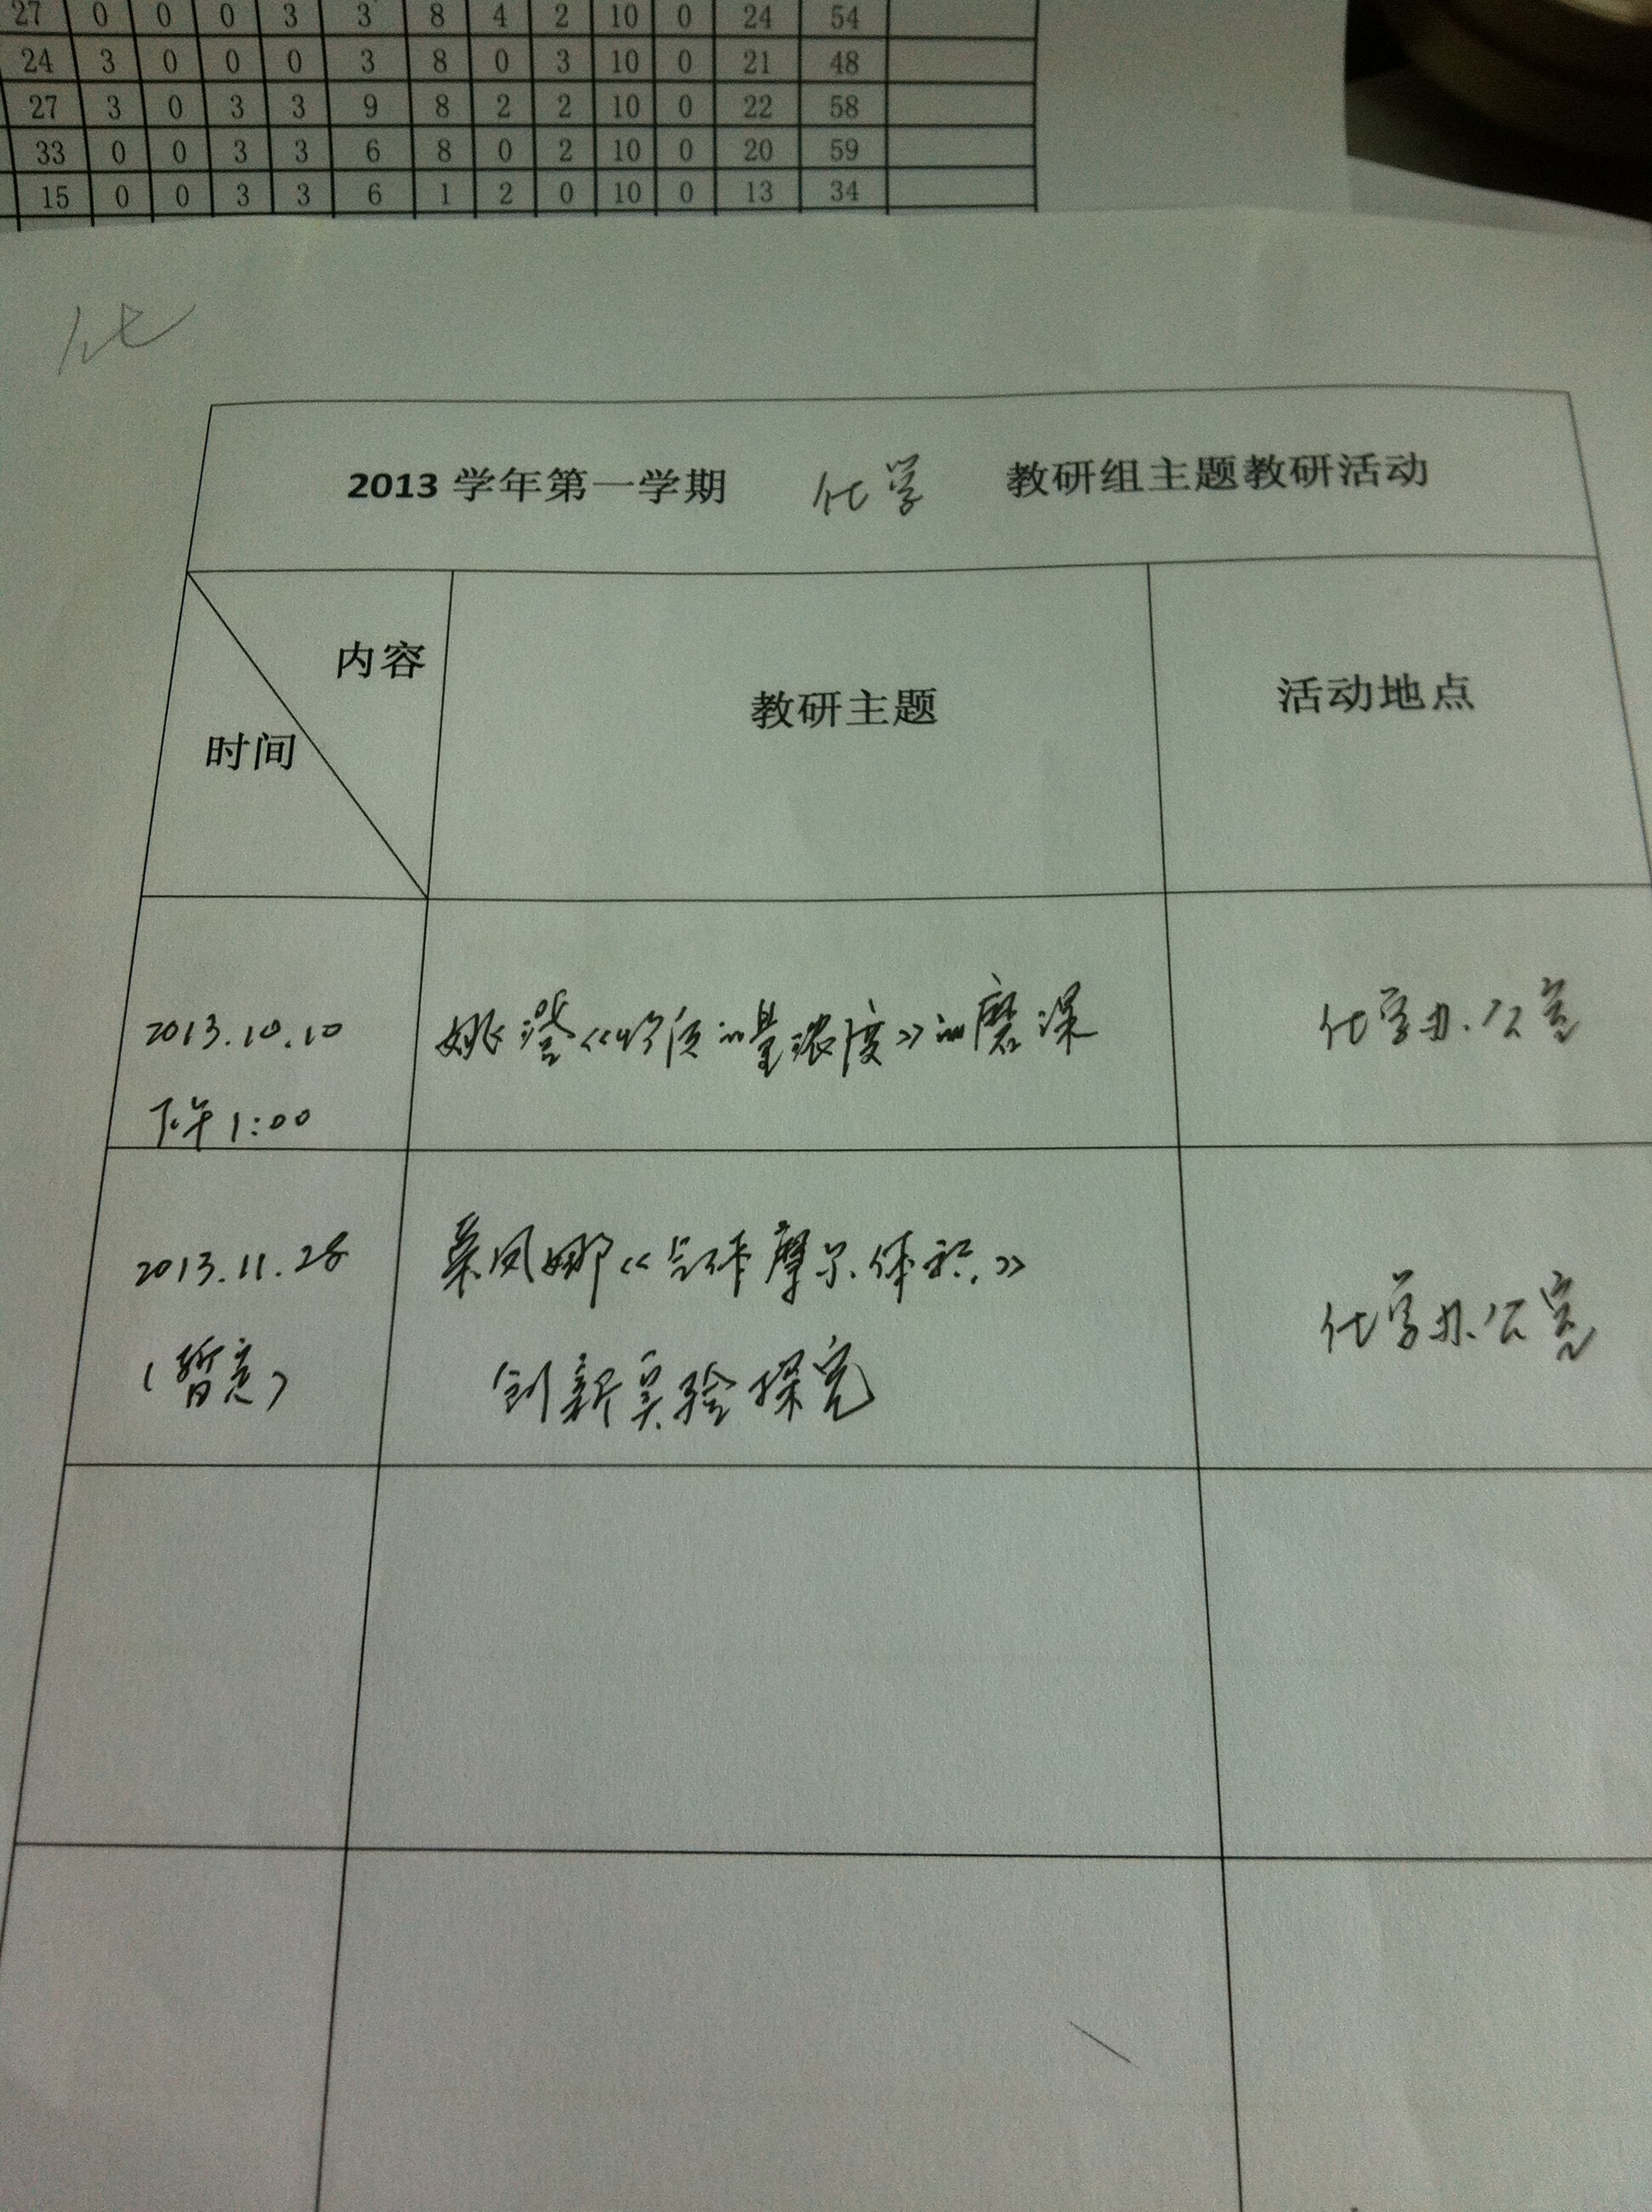 27 0 0 0 3 3 8 4 2 10 0 24 54
24 3 0 0 0 3 8 0 3 10 0 21 48
27 3 0 3 3 9 8 2 2 10 0 22 58
33 0 0 3 3 6 8 0 2 10 0 20 59
15 0 0 3 3 6 1 2 0 10 0 13 34
化
2013 学年第一学期 化学 教研组主题教研活动
内容
时间
教研主题
活动地点
2013.10.10
下午1:00
《物质的量浓度》的磨课
化学办公室
2013.11.28
(暂定)
凤娜《气体摩尔体积》
创新实验探究
化学办公室